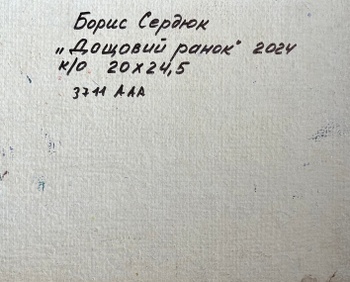 Борис Сердюк
„Дощовий ранок" 2024
к/о 20х24,5
3711 ААА